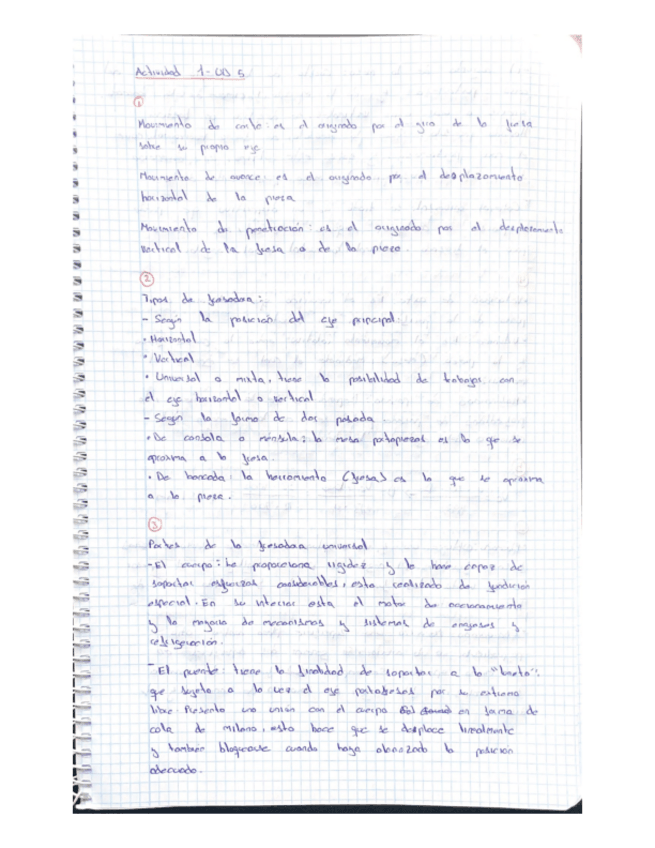 Actividad 1 - UD 5
1
Movimiento de corte: es el originado por el giro de la fresa
sobre su propio eje
Movimiento de avance: es el originado por el desplazamiento
horizontal de la pieza
Movimiento de penetración: es el originado por el desplazamiento
vertical de la fresa o de la pieza.
2
Tipos de fresadora:
- Según la posición del eje principal:
· Horizontal
· Vertical
· Universal o mixta, tiene la posibilidad de trabajar con
el eje horizontal o vertical
- Según la forma de dar pasada
· De consola o ménsula: la mesa portapiezas es la que se
aproxima a la fresa.
· De bancada: la herramienta (fresa) es la que se aproxima
a la pieza.
3
Partes de la fresadora universal
- El cuerpo: le proporciona rigidez y la hace capaz de
soportar esfuerzos considerables, esta realizado de fundición
especial. En su interior esta el motor de accionamiento
y la mayoría de mecanismos y sistemas de engrases y
refrigeración.
- El puente: tiene la finalidad de soportar a la "luneta":
que sujeta a la vez el eje portafresas por su extremo
libre. Presenta una unión con el cuerpo en forma de
cola de milano, esto hace que se desplace linealmente
y también bloquearse cuando haya alcanzado la posición
adecuada.